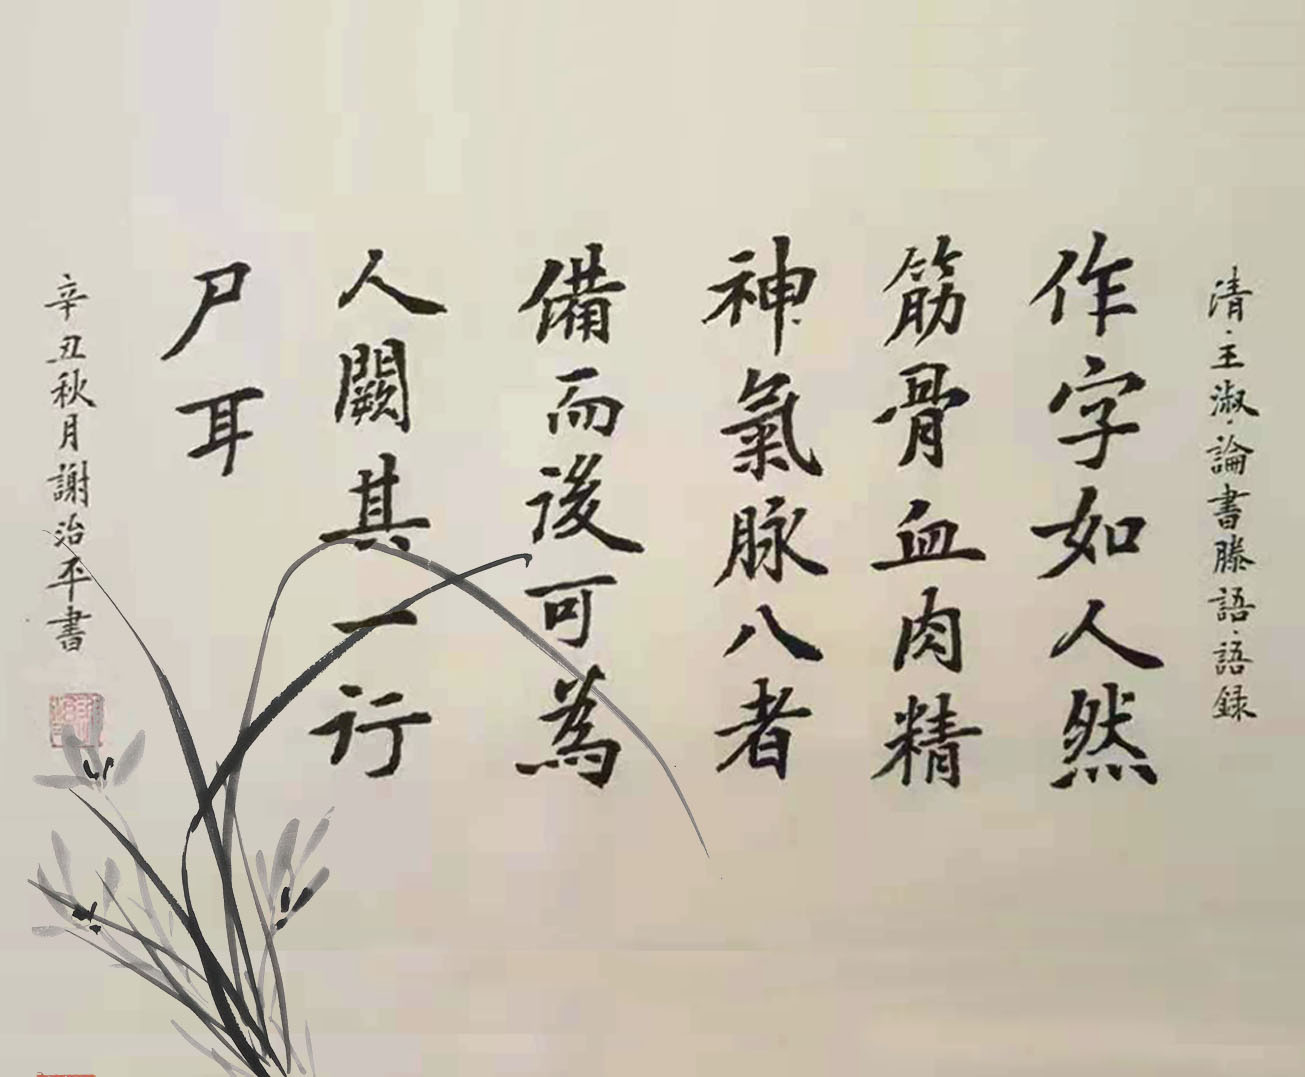 清·王淑·論書賸語·語録
作字如人然
筋骨血肉精
神氣脉八者
備而後可為
人闕其一行
尸耳
辛丑秋月謝治平書